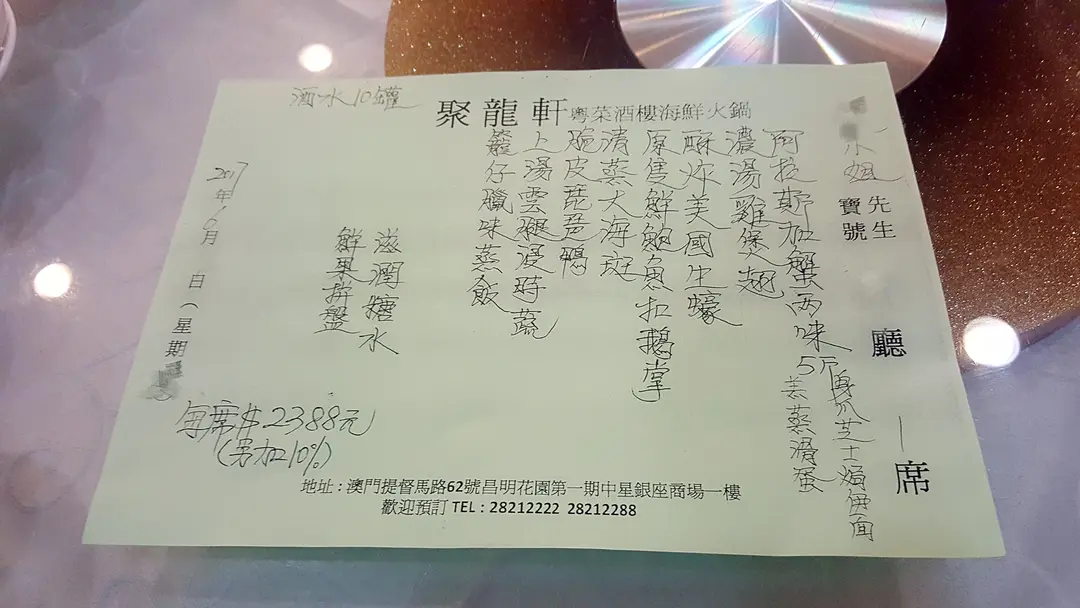 酒水10罐
聚龍軒粵菜酒樓海鮮火鍋
小姐
先生
寶號
廳
一席
阿拉斯加蟹兩味 5斤
身爪芝士焗伊面
盖蒸滑蛋
濃湯雞煲翅
酥炸美國生蠔
原隻鮮鮑魚扣鵝掌
清蒸大海斑
脆皮琵琶鴨
上湯雲腿浸時蔬
籠仔臘味蒸飯
滋潤糖水
鮮果拼盤
2017年6月 日(星期
每席$2388元
(另加10%)
地址:澳門提督馬路62號昌明花園第一期中星銀座商場一樓
歡迎預訂 TEL : 28212222 28212288